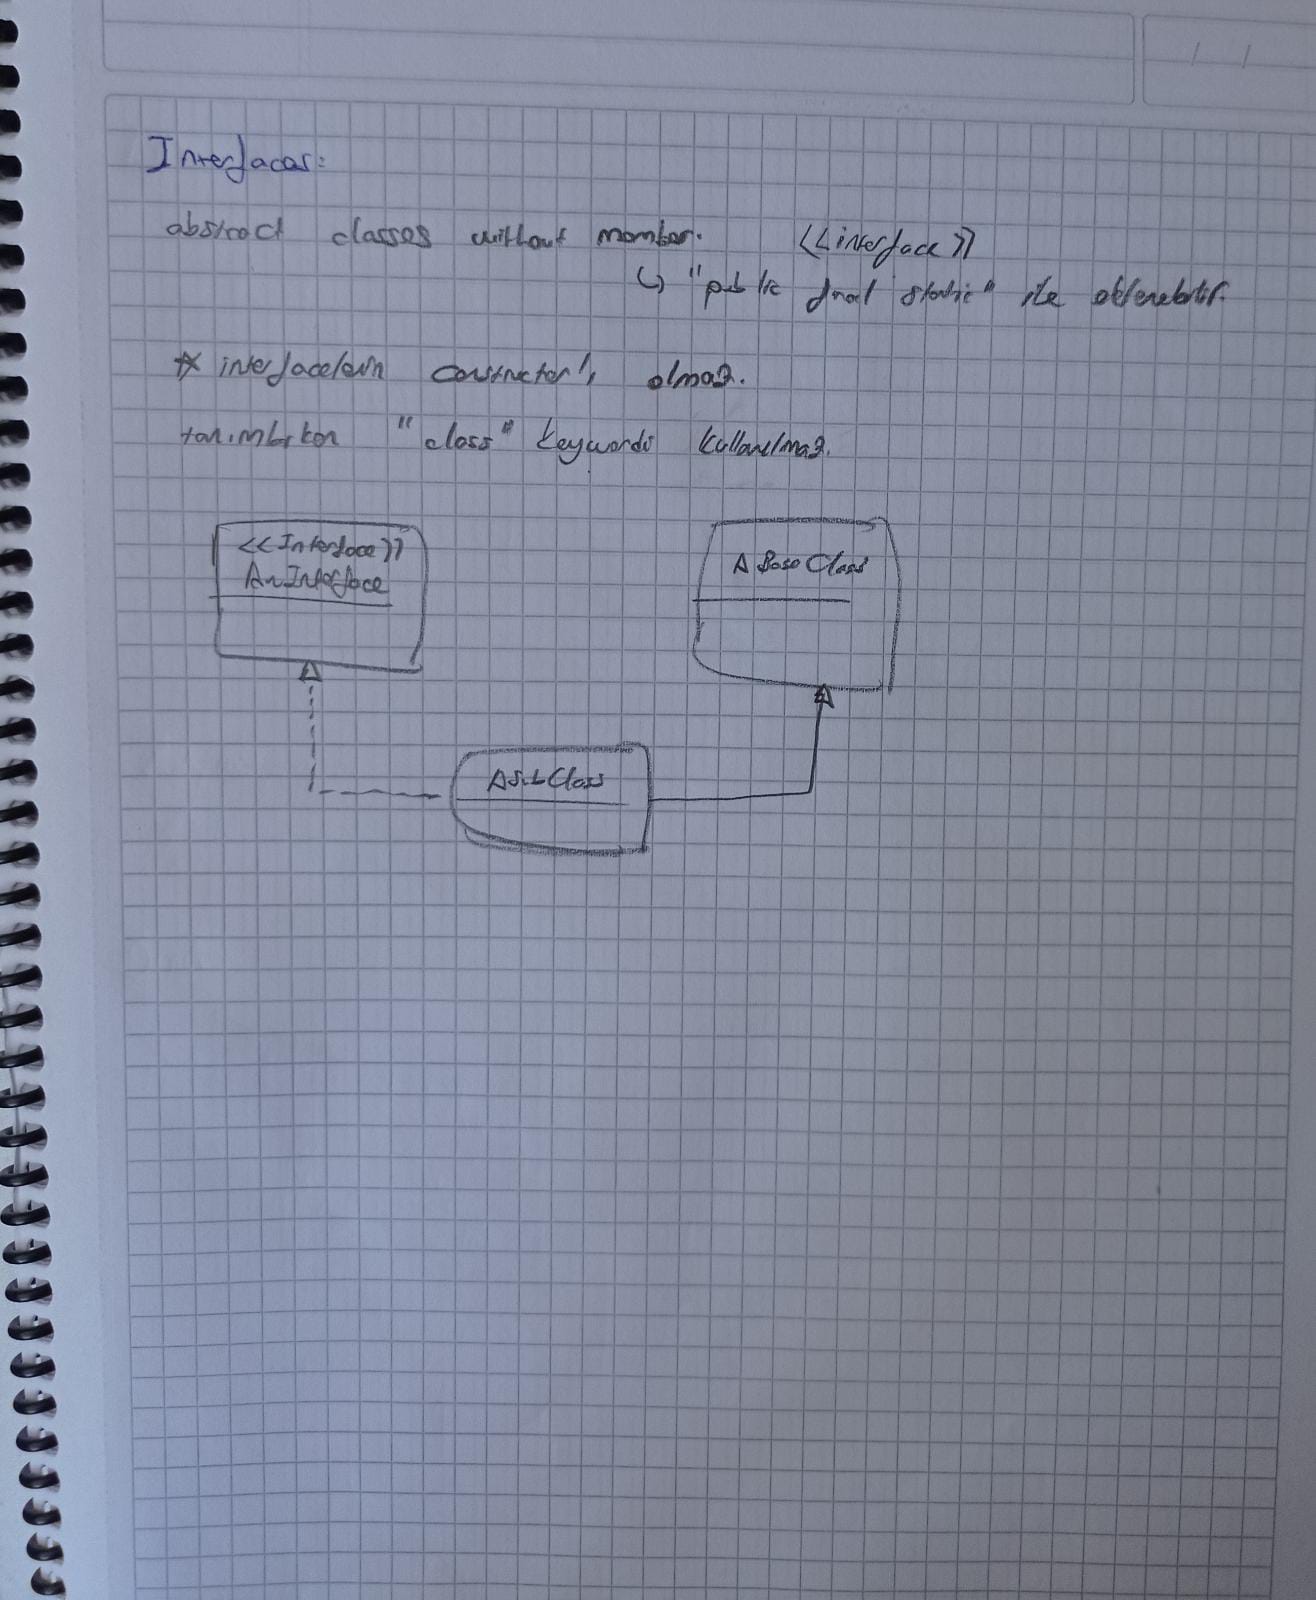 Interfaces:
abstract classes without member. <<interface>>
↳ "public final static" ile eklenebilir.
* interfacelerin constructor'ı olmaz.
tanımlarken "class" keywordü kullanılmaz.
<<Interface>>
AnInterface
ABaseClass
ASubClass